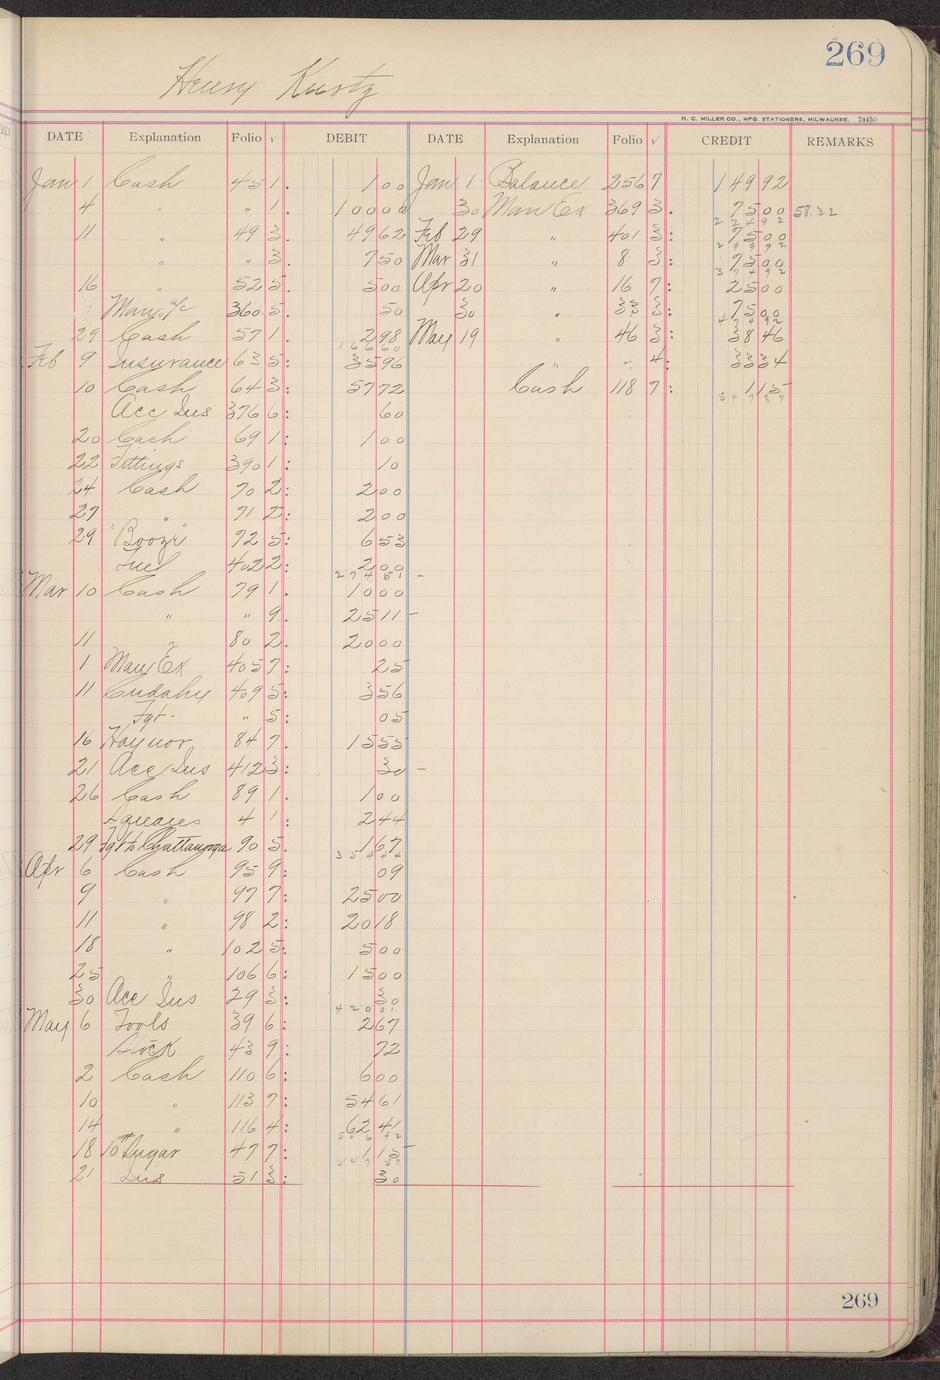 269
Henry Kurtz
H. C. MILLER CO., MFG. STATIONERS, MILWAUKEE. 24450
DATE Explanation Folio √ DEBIT DATE Explanation Folio √ CREDIT REMARKS
Jan 1 Cash 45 1. 100 Jan 1 Balance 256 7 149 92
4 " " 1. 100 00 30 Man Ex 369 3. 75 00 58.32
224 92
11 " 49 3. 49 62 Feb 29 " 401 3: 75 00
299 92
" " 3. 7 50 Mar 31 " 8 3: 75 00
374 92
16 52 5. 5 00 Apr 20 " 16 7: 25 00
Many a/c 360 5. 50 30 " 33 3: 75 00
29 Cash 57 1. 2 98 May 19 " 46 3: 38 46
Feb 9 Insurance 63 5: 35 96 " " 4: 33 34
10 Cash 64 3: 57 72 Cash 118 7: 1 15
547 87
Acc Ins 376 6: 60
20 Cash 69 1: 1 00
22 Fittings 390 1: 10
24 Cash 70 2: 2 00
27 " 71 2: 2 00
29 "Booze" 72 5: 6 53
Fuel 402 2: 2 00
274 51 -
Mar 10 Cash 79 1. 10 00
" " 9. 25 11 -
11 " 80 2. 20 00
1 Man Ex 405 7: 25
11 Cudahy 409 5: 3 56
Fgt. " 5: 05
16 Haynor 84 7. 15 55
21 Acc Ins 412 3: 30 -
26 Cash 89 1. 1 00
Squares 4 1: 2 44
29 Fgt to Chattanooga 90 5. 1 67
354 44
Apr 6 Cash 95 9: 09
9 " 97 7: 25 00
11 " 98 2: 20 18
18 " 102 5: 5 00
25 " 106 6: 15 00
30 Acc Ins 29 3: 30
420 01
May 6 Tools 39 6: 2 67
Stock 43 9: 72
2 Cash 110 6: 6 00
10 " 113 7: 54 61
14 " 116 4: 62 41
546 42
18 10# Sugar 47 7: 1 15 -
547 57
21 Ins 51 3: 30
269